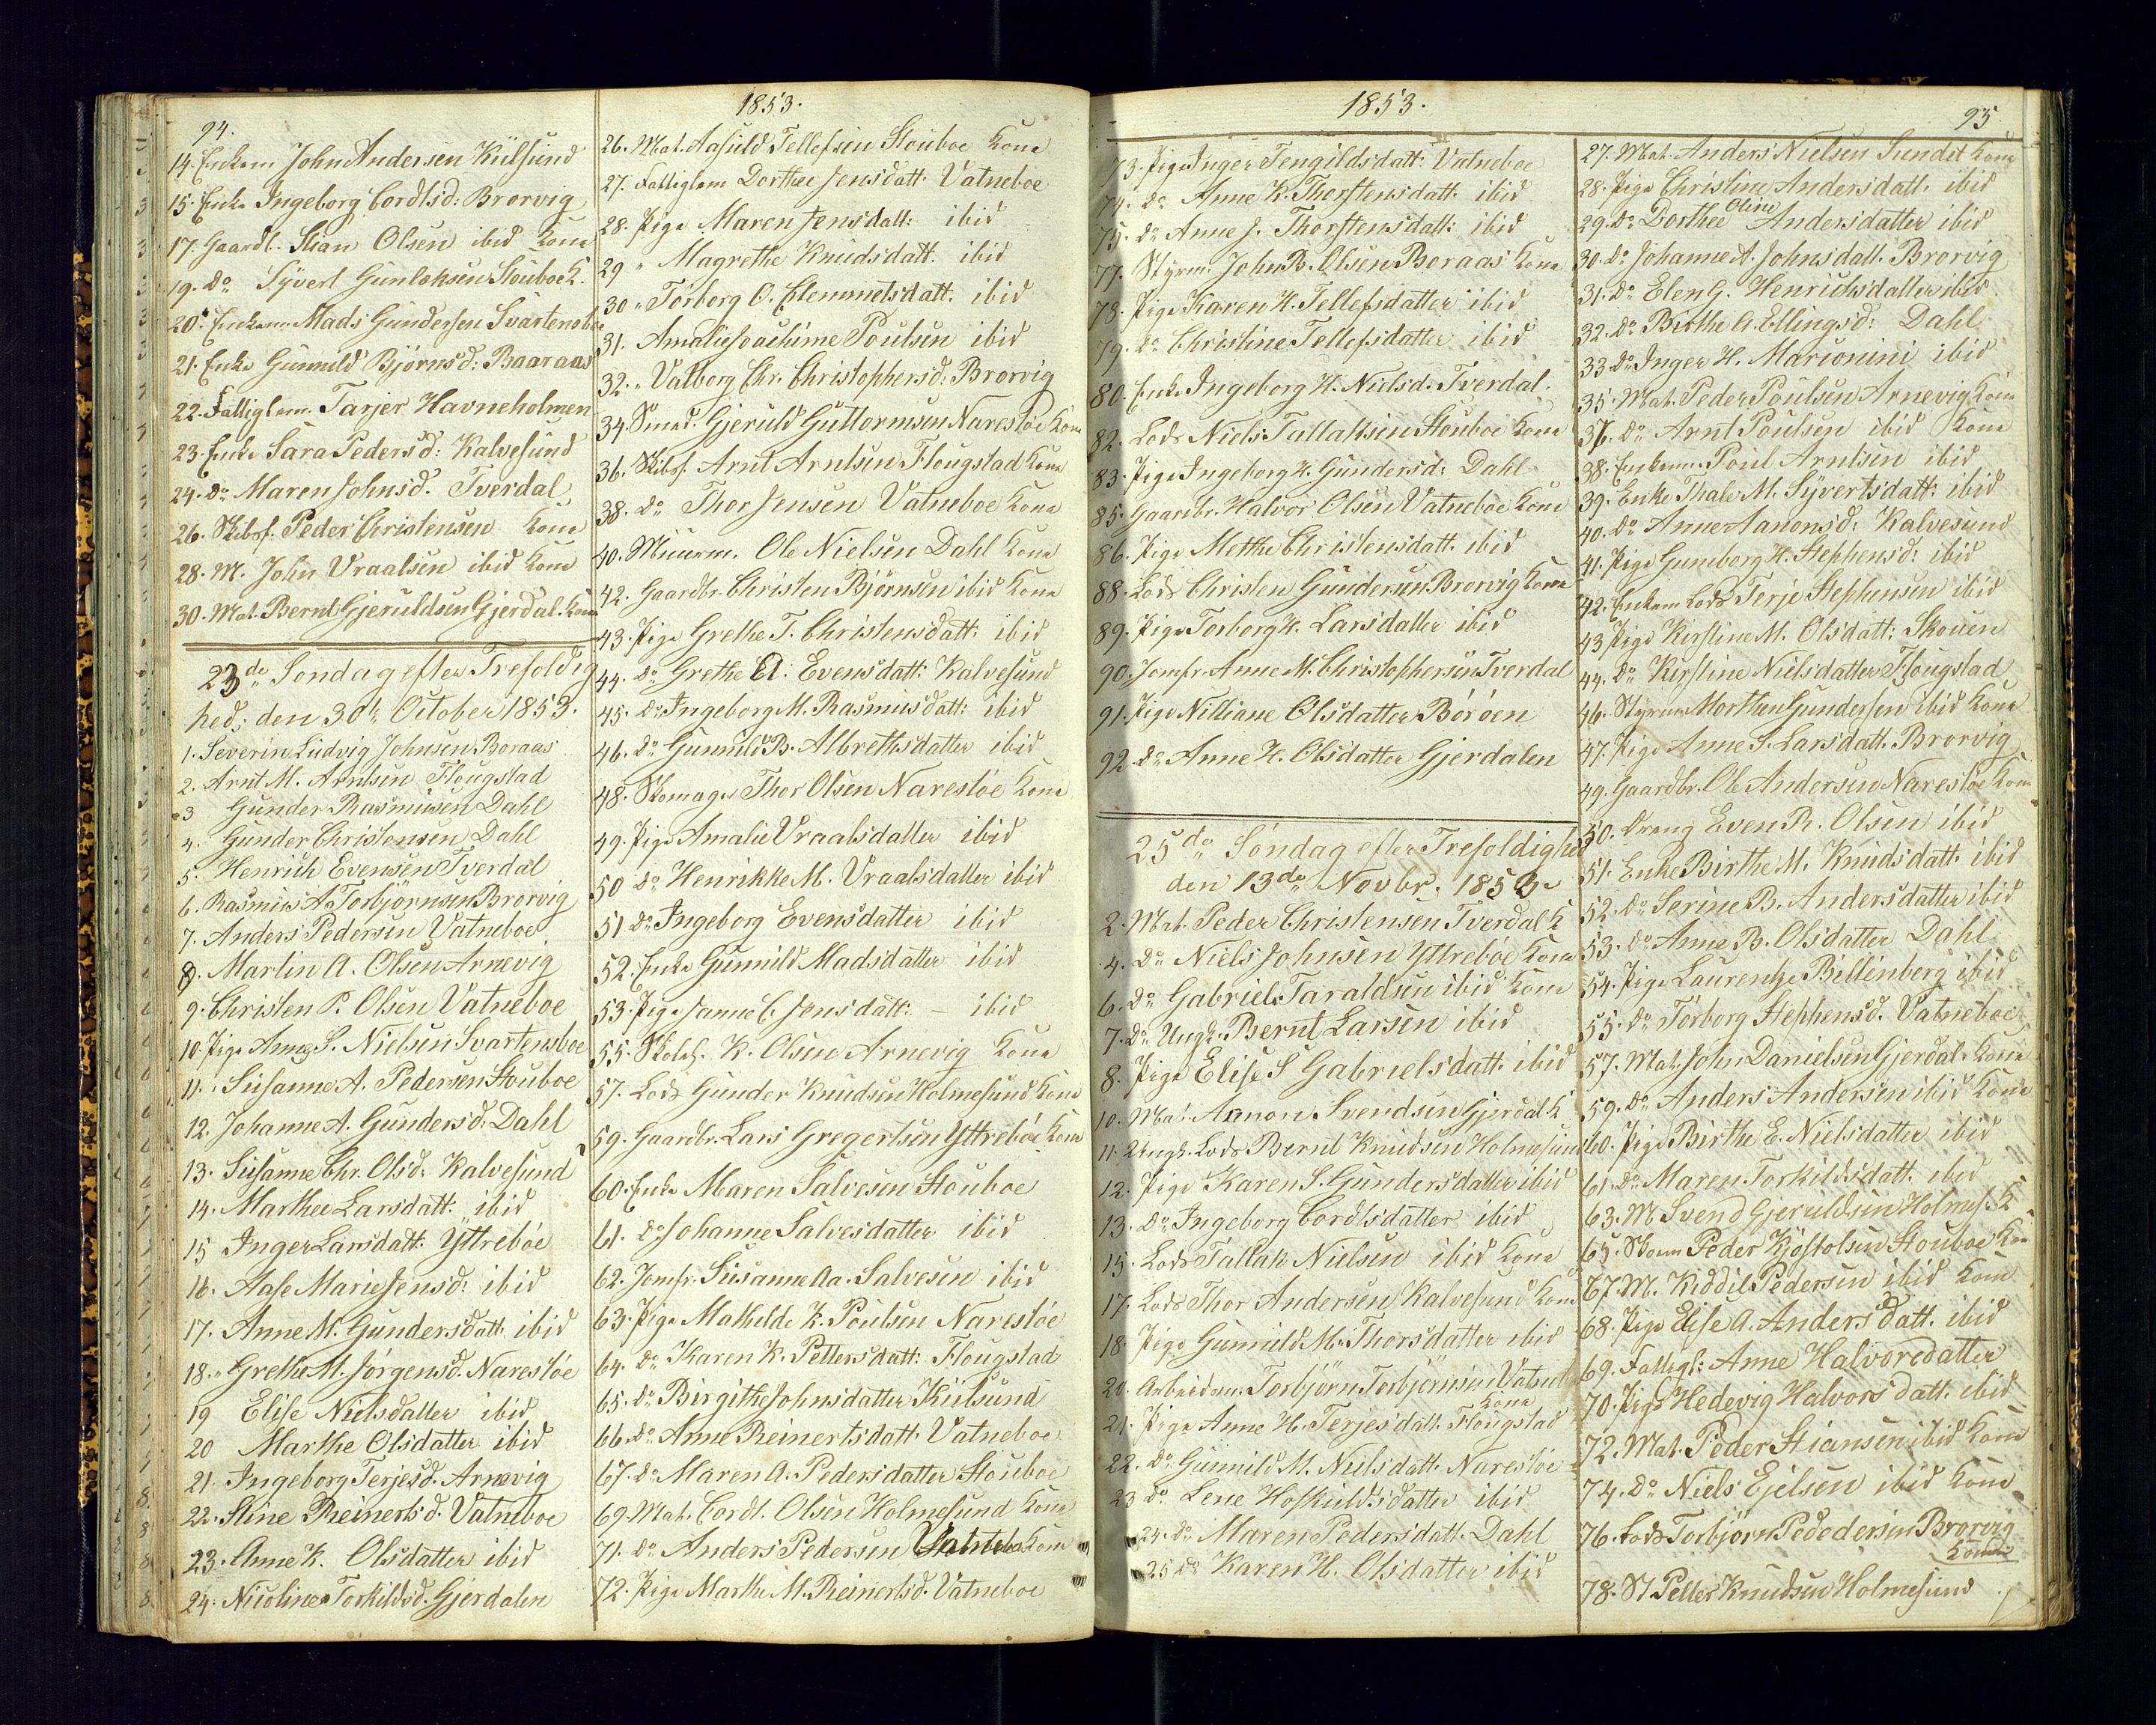 94.
1853.
14. Enkem John Andersen Külsünd
15. Enke Ingeborg Cordtsd: Brorvig
17. Gaardb. Stian Olsen ibid Kone
19. Do Syvert Günlaksen Stouboe K.
20. Enkem. Mads Gündersen Svartensboe
21. Enke Günnild Björnsd: Baaraas
22. Fattiglem. Tarjer Havneholmen
23. Enke Sara Pedersd: Kalvesünd
24. Do Maren Johnsd. Tverdal
26. Skibsf. Peder Christensen Kone
28. M. John Vraalsen ibid Kone
30. Mat. Bernt Gjerüldsen Gjerdal. Kone
23de Söndag efter Trefoldig
hed; den 30te October 1853.
1. Severin Lüdvig Johnsen Boraas
2. Arnt M. Arntsen Flougstad
3 Gunder Rasmüsen Dahl
4. Gunder Christensen Dahl
5. Henrich Evensen Tverdal
6. Rasmüs A Torbjörnsen Brorvig
7. Anders Pedersen Vatneboe
8. Martin A. Olsen Arnevig
9. Christen P. Olsen Vatneboe
10. Pige Anne S. Nielsen Svartensboe
11. Süsanne A. Pedersen Stouboe
12. Johanne A. Gündersd: Dahl
13. Süsanne Chr. Olsd: Kalvesünd
14. Marthee Larsdatt: ibid
15 Inger Larsdatt: Yttreböe
16. Aase Marie Jensd: ibid
17. Anne M. Gündersdatt. ibid
18. " Grethe M. Jörgensd. Naresföe
19 Elise Nielsdatter ibid
20 Marthe Olsdatter ibid
21. Ingeborg Terjesd. Arnevig
22. Stine Reinertsd. Vatneboe
23. Anne K. Olsdatter ibid
24. Nicoline Torkildsd. Gjerdalen
26. Mat. Aasüld Tellefsen Stouboe Kone
27. Fattiglem Dorthee Jensdatt. Vatneboe
28. Pige Maren Jensdatt: ibid
29 " Magrethe Knüdsdatt. ibid
30 " Torborg O. Clemmetsdatt. ibid
31. Amalie Joachime Poülsen ibid
32. " Valborg Chr. Christophersd: Brorvig
34. Smed. Gjerüld Guttormsen Naresföe Kone
36. Skibsf. Arnt Arntsen Flougstad Kone
38. Do Thor Jensen Vatneboe Kone
40. Müurm. Ole Nielsen Dahl Kone
42. Gaardbr. Christen Björnsen ibid Kone
43. Pige Grethe T. Christensdatt. ibid
44. Do Grethe A. Evensdatt: Kalvesünd
45. Do Ingeborg M. Rasmüsdatt: ibid
46. Do Günnild B. Albrethsdatter ibid
48. Skomager Thor Olsen Naresföe Kone
49. Pige Amalie Vraalsdatter ibid
50 Do Henrikke M. Vraalsdatter ibid
51 Do Ingeborg Evensdatter ibid
52. Enke Günnild Madsdatter ibid
53. Pige Janne C. Jensdatt: – ibid
55. Skoleh. K. Olsen Arnevig Kone
57. Lods Gunder Knüdsen Holmesünd Kone
59. Gaardbr. Lars Gregertsen Yttreböe Kone
60. Enke Maren Salvesen Stouboe
61. Do Johanne Salvesdatter ibid
62. Jomfr. Süsanne Aa. Salvesen ibid
63. Pige Mathilde K. Poülsen Naresföe
64. Do Karen K. Pettersdatt: Flougstad
65. Do Birgithe Johnsdatter Külsünd
66. Do Anne Reinertsdatt. Vatneboe
67. Do Maren A. Pedersdatter Stouboe
69. Mat. Cordt. Olsen Holmesund Kone
71. Do Anders Pedersen Vatneboe Kone
72. Pige Marthe M. Reinertsd. Vatneboe
1853.
95
73. Pige Inger Tengildsdatt: Vatneboe
74. Do Anne K. Thorstensdatt: ibid
75. Do Anne J. Thorstensdatt: ibid
77. Styrm. John B. Olsen Boraas Kone
78. Pige Karen K. Tellefsdatter ibid
79. Do Christine Tellefsdatter ibid
80. Enke Ingeborg H. Nielsd. Tverdal.
82. Lods Niels Tallaksen Stouboe Kone
83. Pige Ingeborg K. Gündersd: Dahl
85. Gaardbr. Halvor Olsen Vatneboe Kone
86. Pige Metthe Christensdatt. ibid
88. Lods Christen Gündersen Brorvig Kone
89. Pige Torborg K. Larsdatter ibid
90. Jomfr. Anne M. Christophersen Tverdal
91. Pige Nilliane Olsdatter Böröen
92 Do Anne K. Olsdatter Gjerdalen
25de Söndag efter Trefoldighed
den 13de Novbr. 1853.
2. Mat. Peder Christensen Tverdal K
4. Do Niels Johnsen Yttreböe Kone
6. Do Gabriel Taraldsen ibid Kone
7. Do Ungk. Bernt Larsen ibid
8. Pige Elise S Gabrielsdatt. ibid
10. Mat. Aanon Svendsen Gjerdal K
11. Ungk. Lods Bernt Knüdsen Holmesünd
12. Pige Karen S. Gündersdatter ibid
13. Do Ingeborg Cordtsdatter ibid
15. Lods Tallak Nielsen ibid Kone
17. Lods Thor Andersen Kalvesund Kone
18. Pige Günnild M. Thorsdatter ibid
20. Arbeidsm. Torbjörn Torbjörnsen Vatneb
Kone
21. Pige Anne H. Terjesdatt. Flougstad
22. Do Günnild M. Nielsdatt. Naresföe
23 Do Lene Hoskuldsdatter ibid
24. Do Maren Pedersdatt. Dahl
25 Do Karen H. Olsdatter ibid
27. Mat. Anders Nielsen Sundet Kone
28. Pige Christine Andersdatt. ibid
29. Do Dorthee Oline Andersdatter ibid
30. Do Johanne A. Johnsdatt. Brorvig
31. Do Elen G. Henrichsdatter ibid
32. Do Birthe A. Ellingsd: Dahl
33 Do Inger H. Marionini ibid
35. Mat. Peder Poülsen Arnevig Kone
37. Do Arnt Poülsen ibid Kone
38. Enkem. Poül Arntsen ibid
39. Enke Thale M. Syvertsdatt: ibid
40. Do Anne Aanonsd: Kalvesund
41. Pige Guneborg K. Stephensd: ibid
42. Enkem Lods Terje Stephensen ibid
43 Pige Kirstine M. Olsdatt: Skouen
44. Do Kirstine Nielsdatter Flougstad
46. Styrm Morthen Gundersen ibid Kone
47. Pige Anne S. Larsdatt. Brorvig
49. Gaardbr. Ole Andersen Naresföe Kone
50. Dreng Even R. Olsen ibid
51. Enke Birthe M. Knüdsdatt. ibid
52. Do Serine B. Andersdatter ibid
53. Do Anne B. Olsdatter Dahl
54. Pige Laurentze Billenberg ibid
55. Do Torborg Stephensd. Vatneboe
57. Mat. John Danielsen Gjerdal. Kone
59. Do Anders Andersen ibid Kone
60. Pige Birthe E. Nielsdatter ibid
61 Do Maren Torkildsdatt. ibid
63. M Svend Gjerüldsen Holmes. K
65. Skom Peder Kjöstolsen Stouboe Kone
67. M. Kiddil Pedersen ibid Kone
68. Pige Elise A. Andersdatt. ibid
69. Fattigl: Anne Halvorsdatter
70. Pige Hedevig Halvorsdatt. ibid
72. Mat. Peder Stiansen ibid Kone
74. Do Niels Ejelsen ibid Kone
76. Lods Torbjörn Pededersen Brorvig
Kone
78. St. Petter Knudsen Holmesund